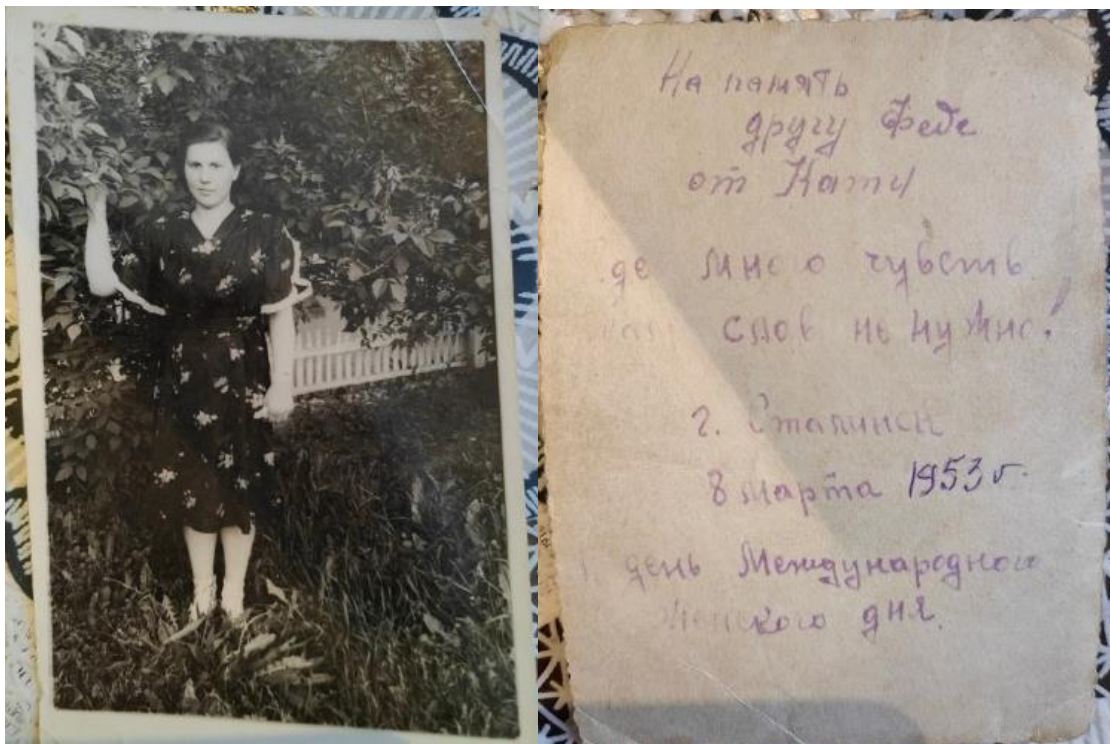 На память
другу Феде
от Кати
де много чувств
там слов не нужно!
г. Сталинск
8 марта 1953 г.
день Международного
Женского дня.